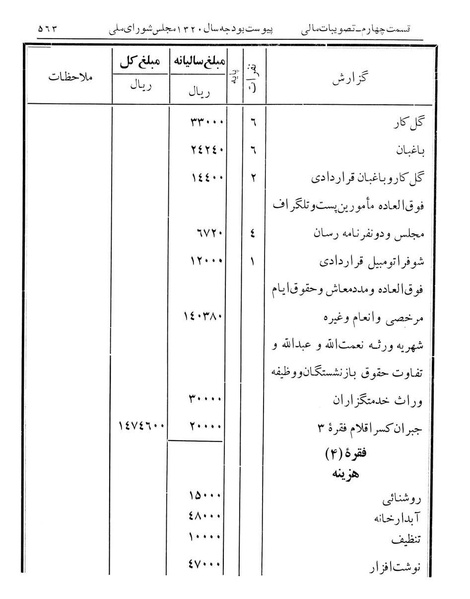 قسمت چهارم - تصویبات مالی پیوست بودجه سال ۱۳۲۰ مجلس شورای ملی ۵۶۳
گزارش نفرات پایه مبلغ سالیانه مبلغ کل ملاحظات
ریال ریال
گل کار ۶ ۳۳۰۰۰
باغبان ۶ ۲٤۲٤۰
گل کار و باغبان قراردادی ۲ ۱٤٤۰۰
فوق العاده مأمورین پست و تلگراف
مجلس و دو نفر نامه رسان ٤ ۶۷۲۰
شوفر اتومبیل قراردادی ۱ ۱۲۰۰۰
فوق العاده و مدد معاش و حقوق ایام
مرخصی و انعام و غیره ۱٤۰۳۸۰
شهریه ورثه نعمت الله و عبدالله و
تفاوت حقوق بازنشستگان و وظیفه
وراث خدمتگزاران ۳۰۰۰۰
جبران کسر اقلام فقرهٔ ۳ ۲۰۰۰۰ ۱٤۷٤۶۰۰
فقرهٔ (٤)
هزینه
روشنائی ۱۵۰۰۰
آبدارخانه ٤۸۰۰۰
تنظیف ۱۰۰۰۰
نوشت افزار ٤۷۰۰۰